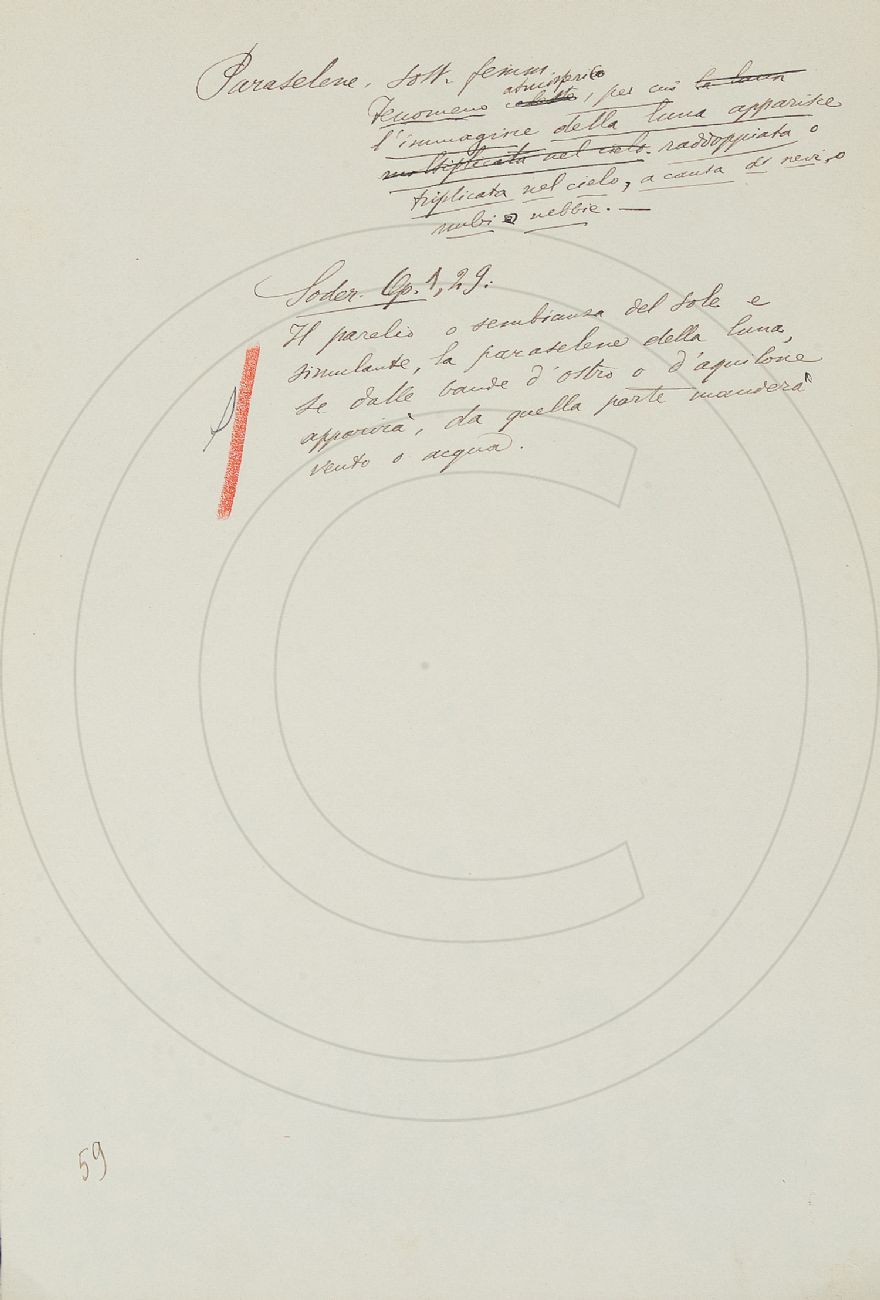 Paraselene. Sost. femm.
atmosferico
Fenomeno celeste, per cui la luna
l'immagine della luna apparisce
moltiplicata nel cielo. raddoppiata o
triplicata nel cielo, a causa di nevi, o
nubi o nebbie. —
Soder. Op. 1, 29:
Il parelio o sembianza del sole e
simulante, la paraselene della luna,
se dalle bande d'ostro o d'aquilone
apparirà, da quella parte manderà
vento o acqua.
59